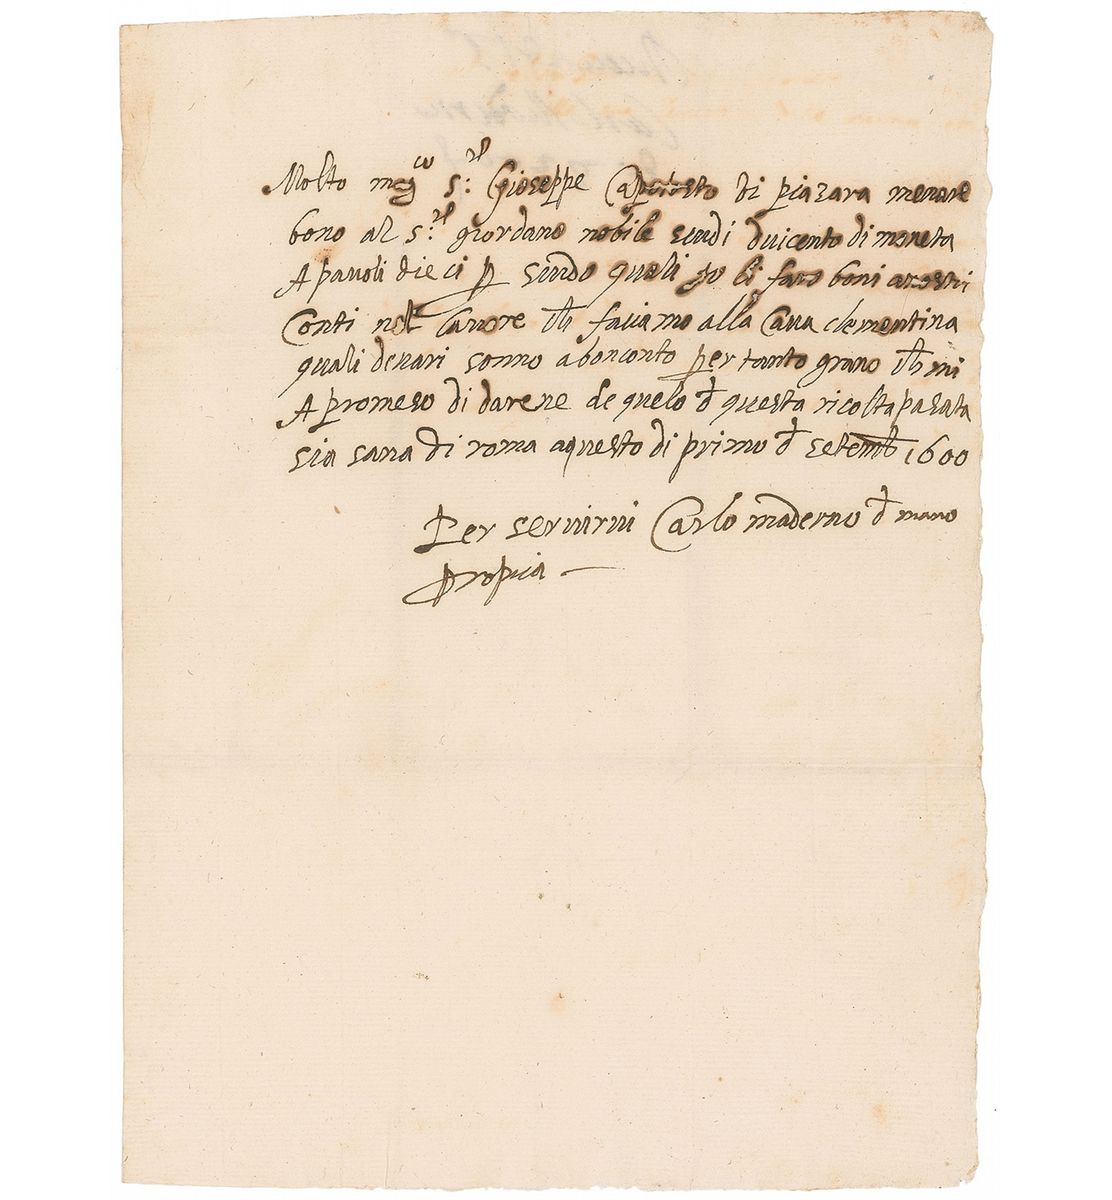 Molto mag.co s.r Gioseppe Caposto di piazara menare
bono al s.r giordano nobile scudi duicento di moneta
A pauoli dieci p scudo quali io li faro boni a vostri
Conti nel lauore ch faciamo alla Caua clementina
quali denari sonno a bonconto per tanto grano ch mi
A promeso di darene de quelo d questa ricolta pasata
sia sana di roma a questo di primo d setemb 1600
Per seruirui Carlo maderno d mano
propia